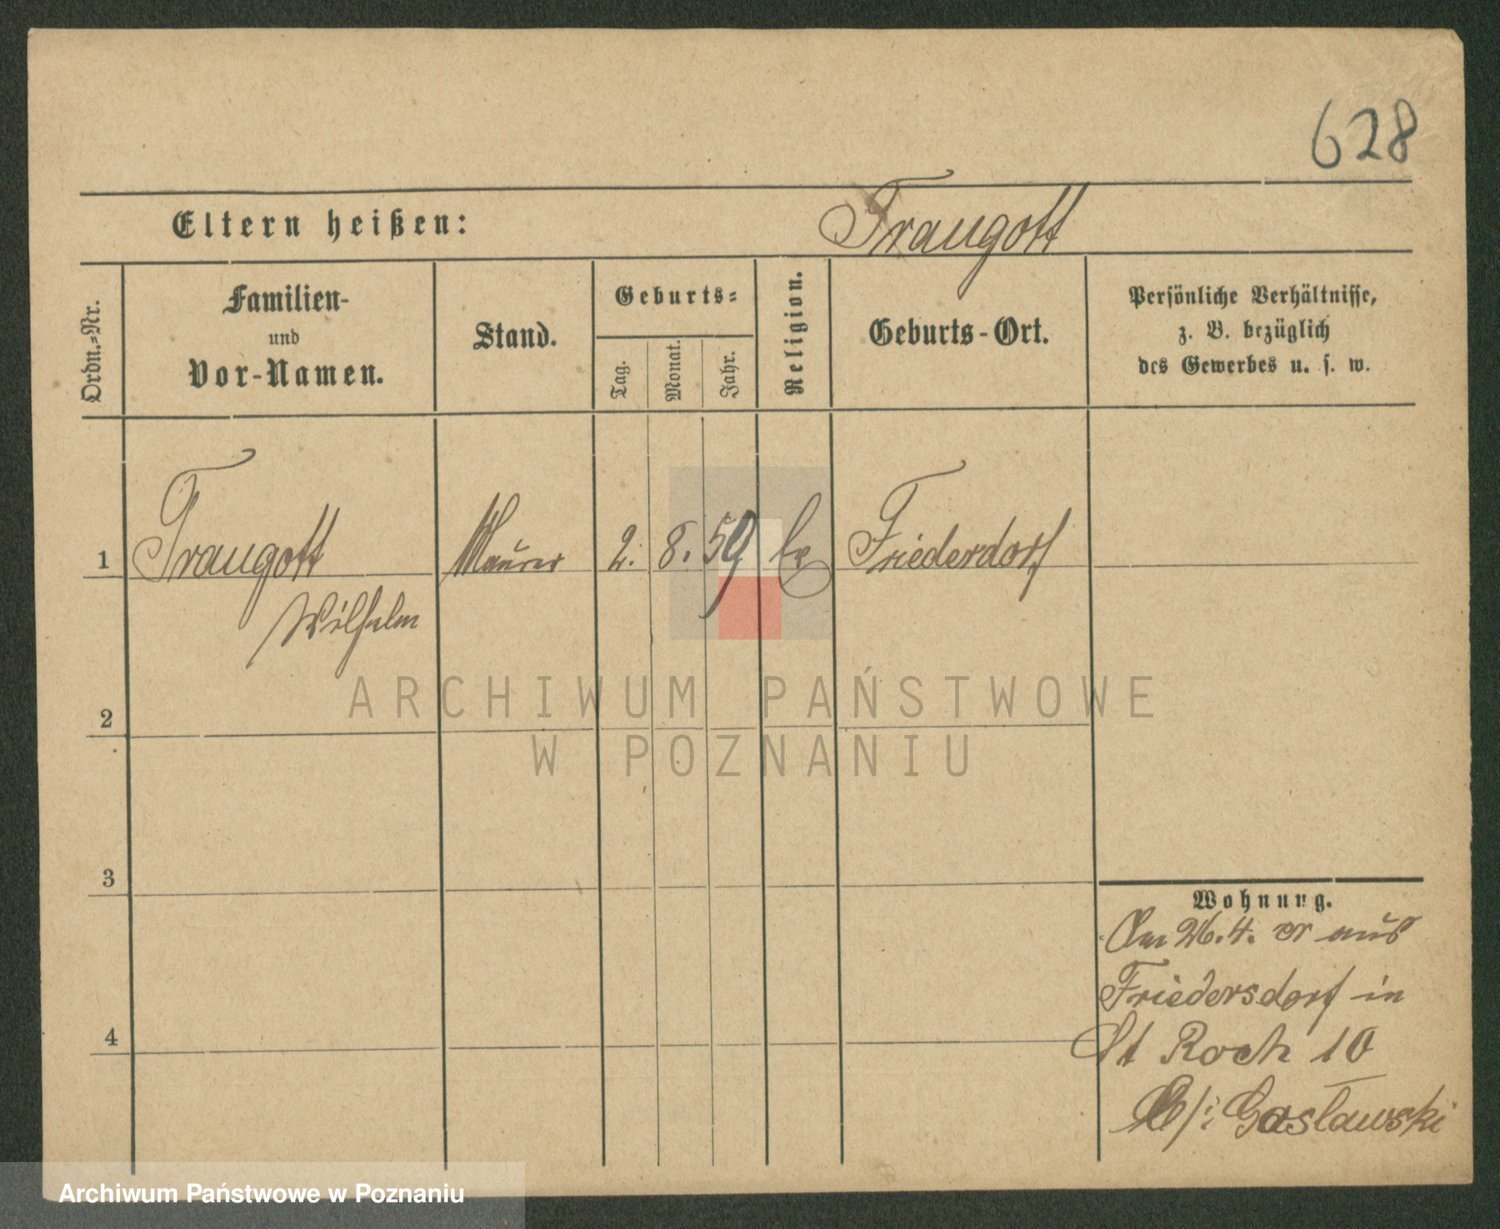 628
Eltern heißen: Traugott
Ordn.-Nr.
Familien-
und
Vor-Namen.
Stand.
Geburts-
Tag.
Monat.
Jahr.
Religion.
Geburts-Ort.
Persönliche Verhältnisse,
z. B. bezüglich
des Gewerbes u. s. w.
1 Traugott Maurer 2. 8. 59 Friederdorf
Wilhelm
ARCHIWUM PAŃSTWOWE
W POZNANIU
2
3
4
Wohnung.
26. 4. cr aus
Friedersdorf in
St Roch 10
b/: Goslawski
Archiwum Państwowe w Poznaniu